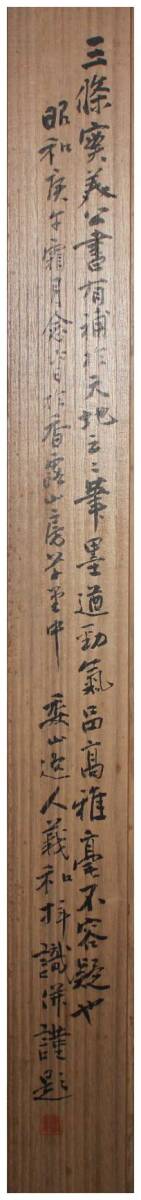 三條實美公書有補於天地云々筆墨遒勁氣品高雅毫不容疑也
昭和庚午霜月念八日於香露山房草堂中 委山逸人義和拝識併謹題